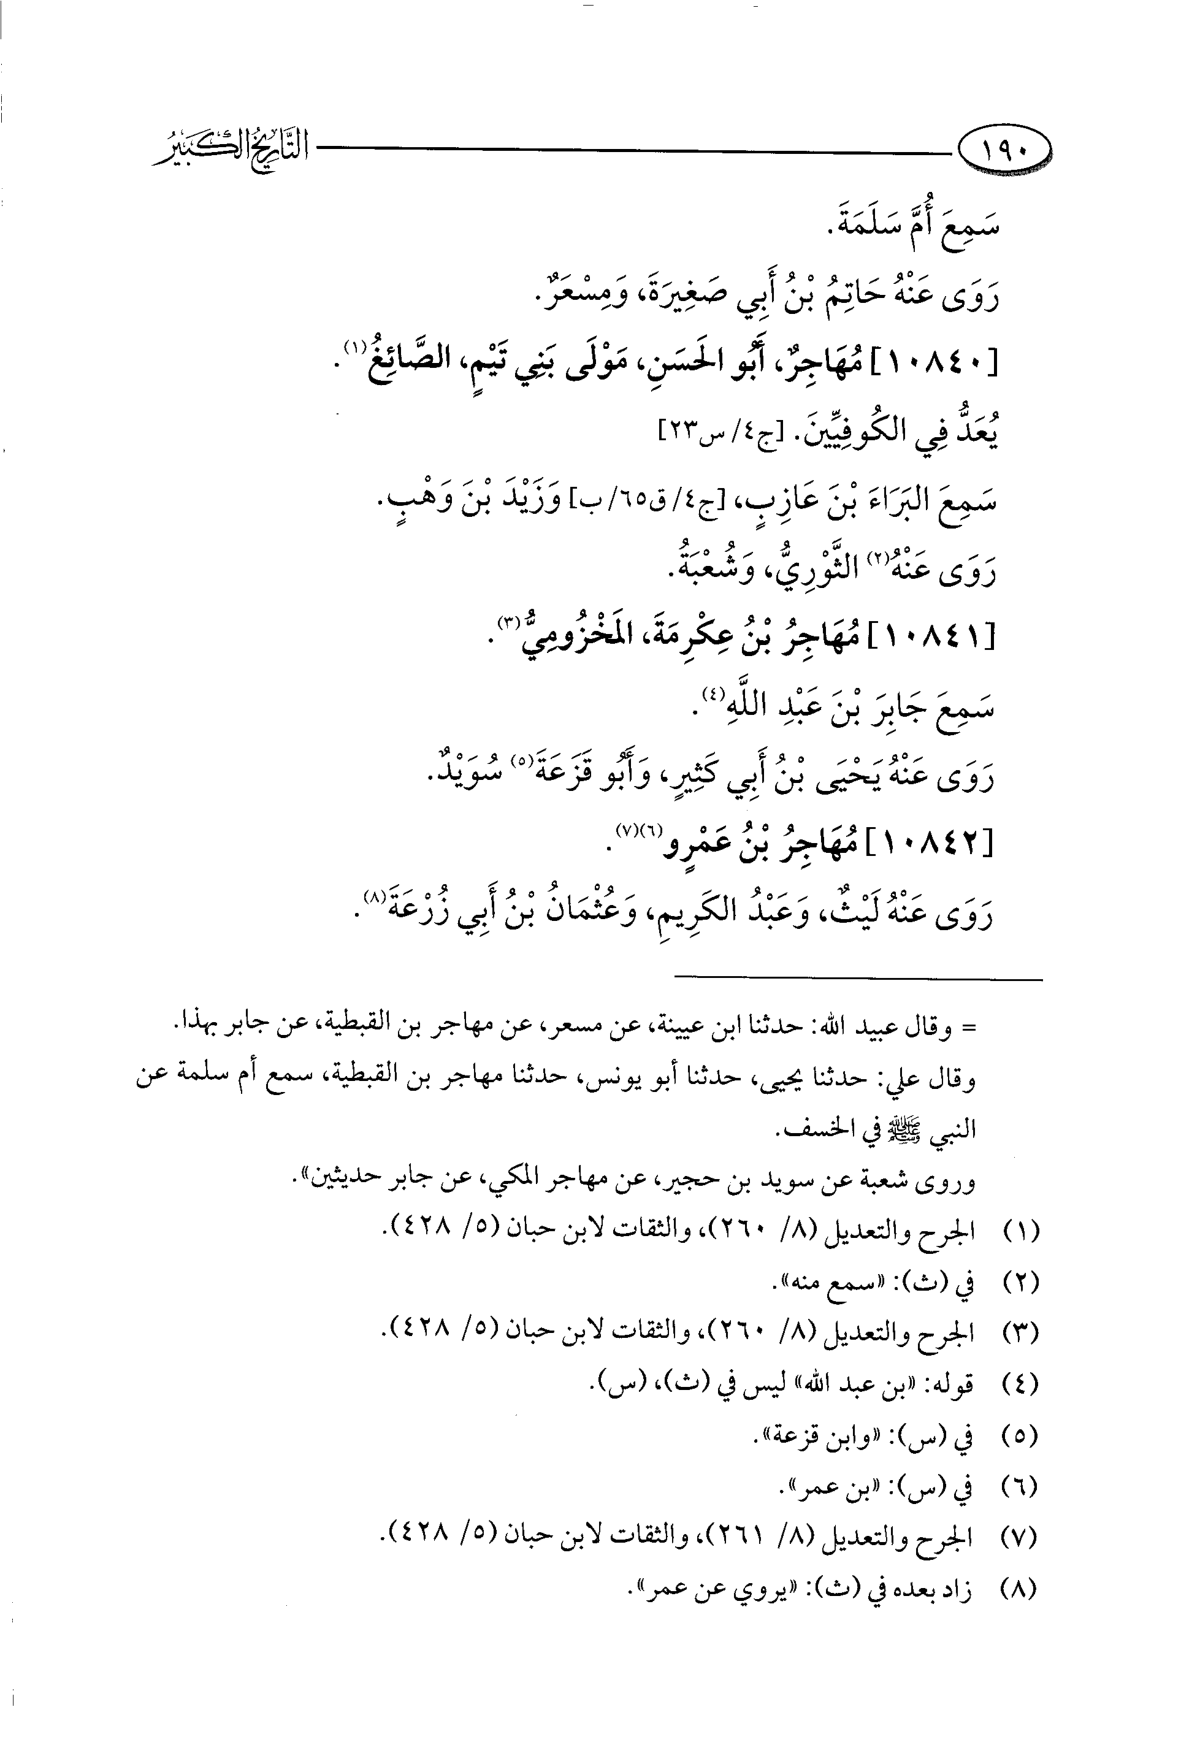 ١٩٠ التَّارِيخُ الكَبِيرُ
سَمِعَ أُمَّ سَلَمَةَ.
رَوَى عَنْهُ حَاتِمُ بْنُ أَبِي صَغِيرَةَ، وَمِسْعَرٌ.
[١٠٨٤٠] مُهَاجِرٌ، أَبُو الحَسَنِ، مَوْلَى بَنِي تَيْمٍ، الصَّائِغُ(١).
يُعَدُّ فِي الكُوفِيِّينَ. [ج٤/ س٢٣]
سَمِعَ البَرَاءَ بْنَ عَازِبٍ، [ج٤/ ق٦٥/ ب] وَزَيْدَ بْنَ وَهْبٍ.
رَوَى عَنْهُ(٢) الثَّوْرِيُّ، وَشُعْبَةُ.
[١٠٨٤١] مُهَاجِرُ بْنُ عِكْرِمَةَ، المَخْزُومِيُّ(٣).
سَمِعَ جَابِرَ بْنَ عَبْدِ اللَّهِ(٤).
رَوَى عَنْهُ يَحْيَى بْنُ أَبِي كَثِيرٍ، وَأَبُو قَزَعَةَ(٥) سُوَيْدٌ.
[١٠٨٤٢] مُهَاجِرُ بْنُ عَمْرٍو(٦)(٧).
رَوَى عَنْهُ لَيْثٌ، وَعَبْدُ الكَرِيمِ، وَعُثْمَانُ بْنُ أَبِي زُرْعَةَ(٨).
= وقال عبيد الله: حدثنا ابن عيينة، عن مسعر، عن مهاجر بن القبطية، عن جابر بهذا.
وقال علي: حدثنا يحيى، حدثنا أبو يونس، حدثنا مهاجر بن القبطية، سمع أم سلمة عن
النبي ﷺ في الخسف.
وروى شعبة عن سويد بن حجير، عن مهاجر المكي، عن جابر حديثين».
(١) الجرح والتعديل (٨/ ٢٦٠)، والثقات لابن حبان (٥/ ٤٢٨).
(٢) في (ث): «سمع منه».
(٣) الجرح والتعديل (٨/ ٢٦٠)، والثقات لابن حبان (٥/ ٤٢٨).
(٤) قوله: «بن عبد الله» ليس في (ث)، (س).
(٥) في (س): «وابن قزعة».
(٦) في (س): «بن عمر».
(٧) الجرح والتعديل (٨/ ٢٦١)، والثقات لابن حبان (٥/ ٤٢٨).
(٨) زاد بعده في (ث): «يروي عن عمر».